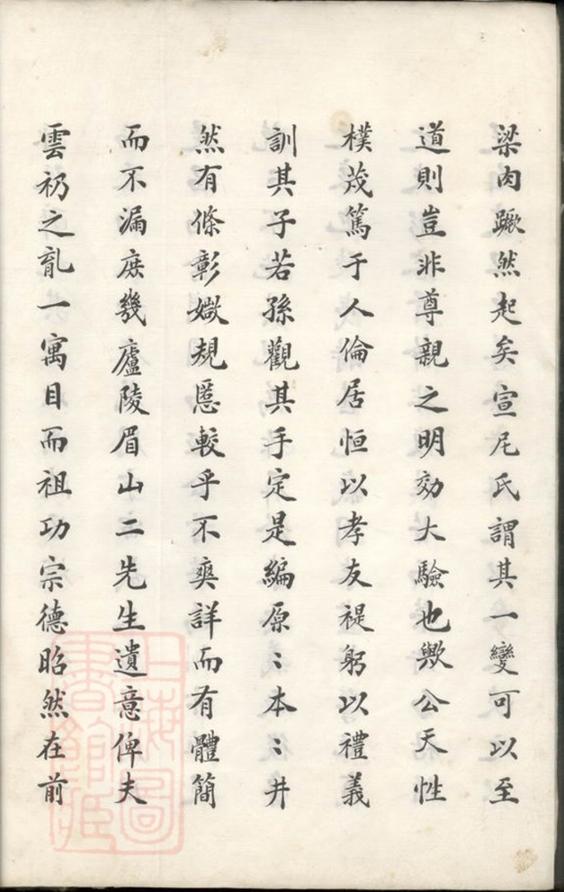 梁肉蹶然起矣宣尼氏謂其一變可以至
道則豈非尊親之明効大驗也歟公天性
樸茂篤于人倫居恒以孝友禔躬以禮義
訓其子若孫觀其手定是編原〻本〻井
然有條彰媺規慝較乎不爽詳而有體簡
而不漏庻幾廬陵眉山二先生遺意俾夫
雲礽之亂一寓目而祖功宗德昭然在前
上海圖書館藏